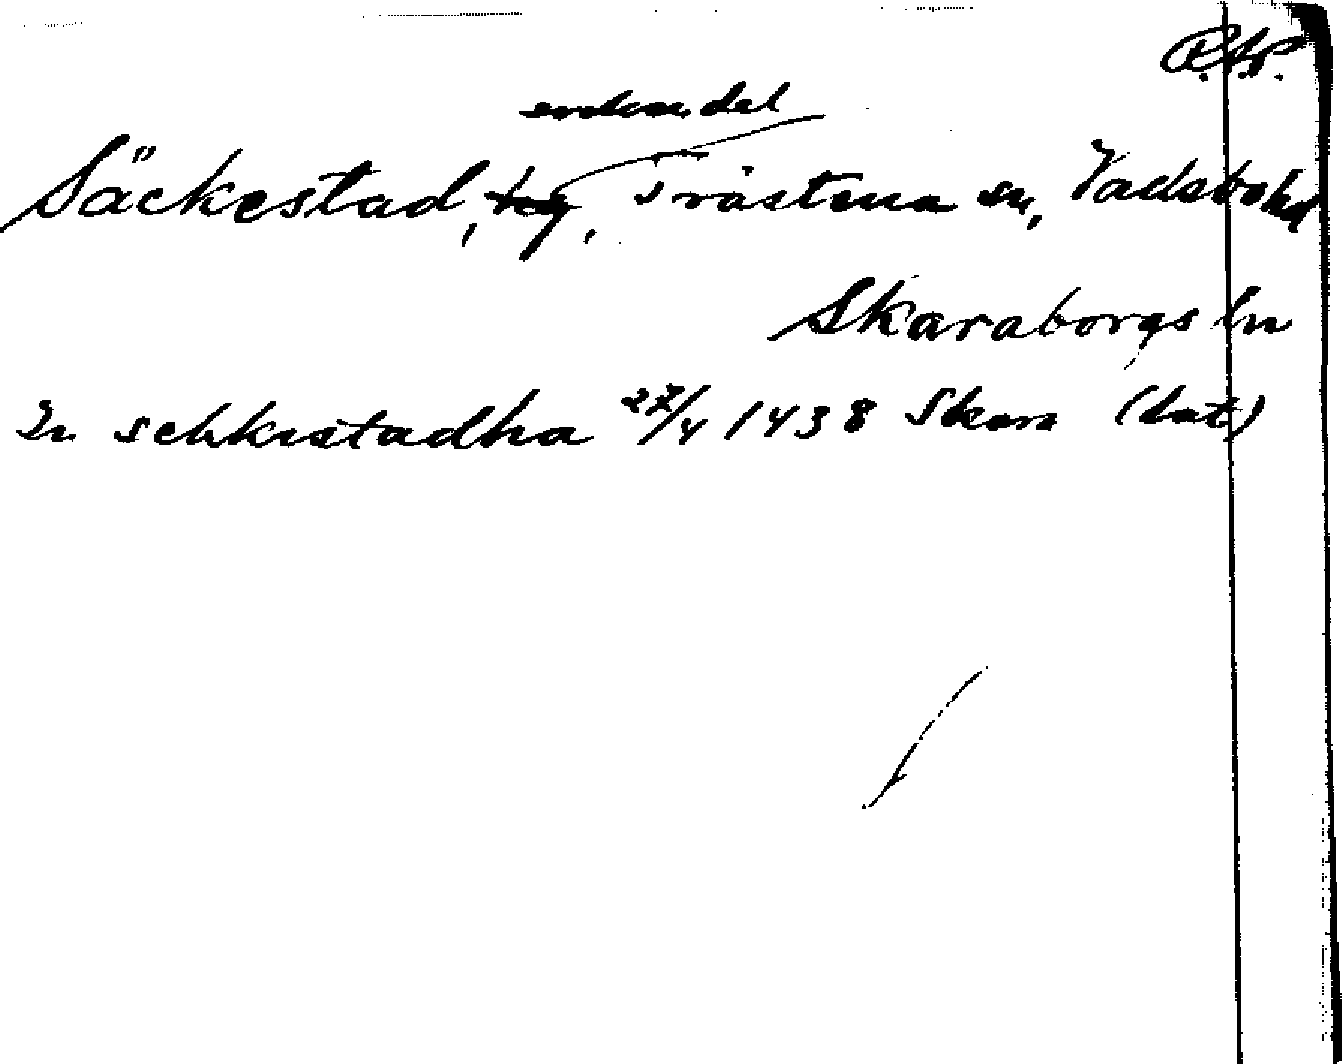 R.A.P.
Säckestad, by, Trästena sn, Vadsbo hd
Skaraborgs ln
In sehkestadha 27/4 1438 Skara (lat)